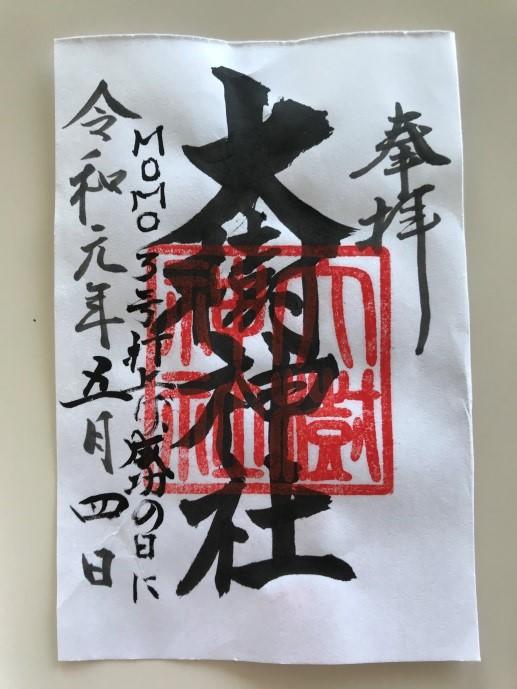 奉拝
大樹神社
大樹神社
MOMO3号打上げ成功の日に
令和元年五月四日